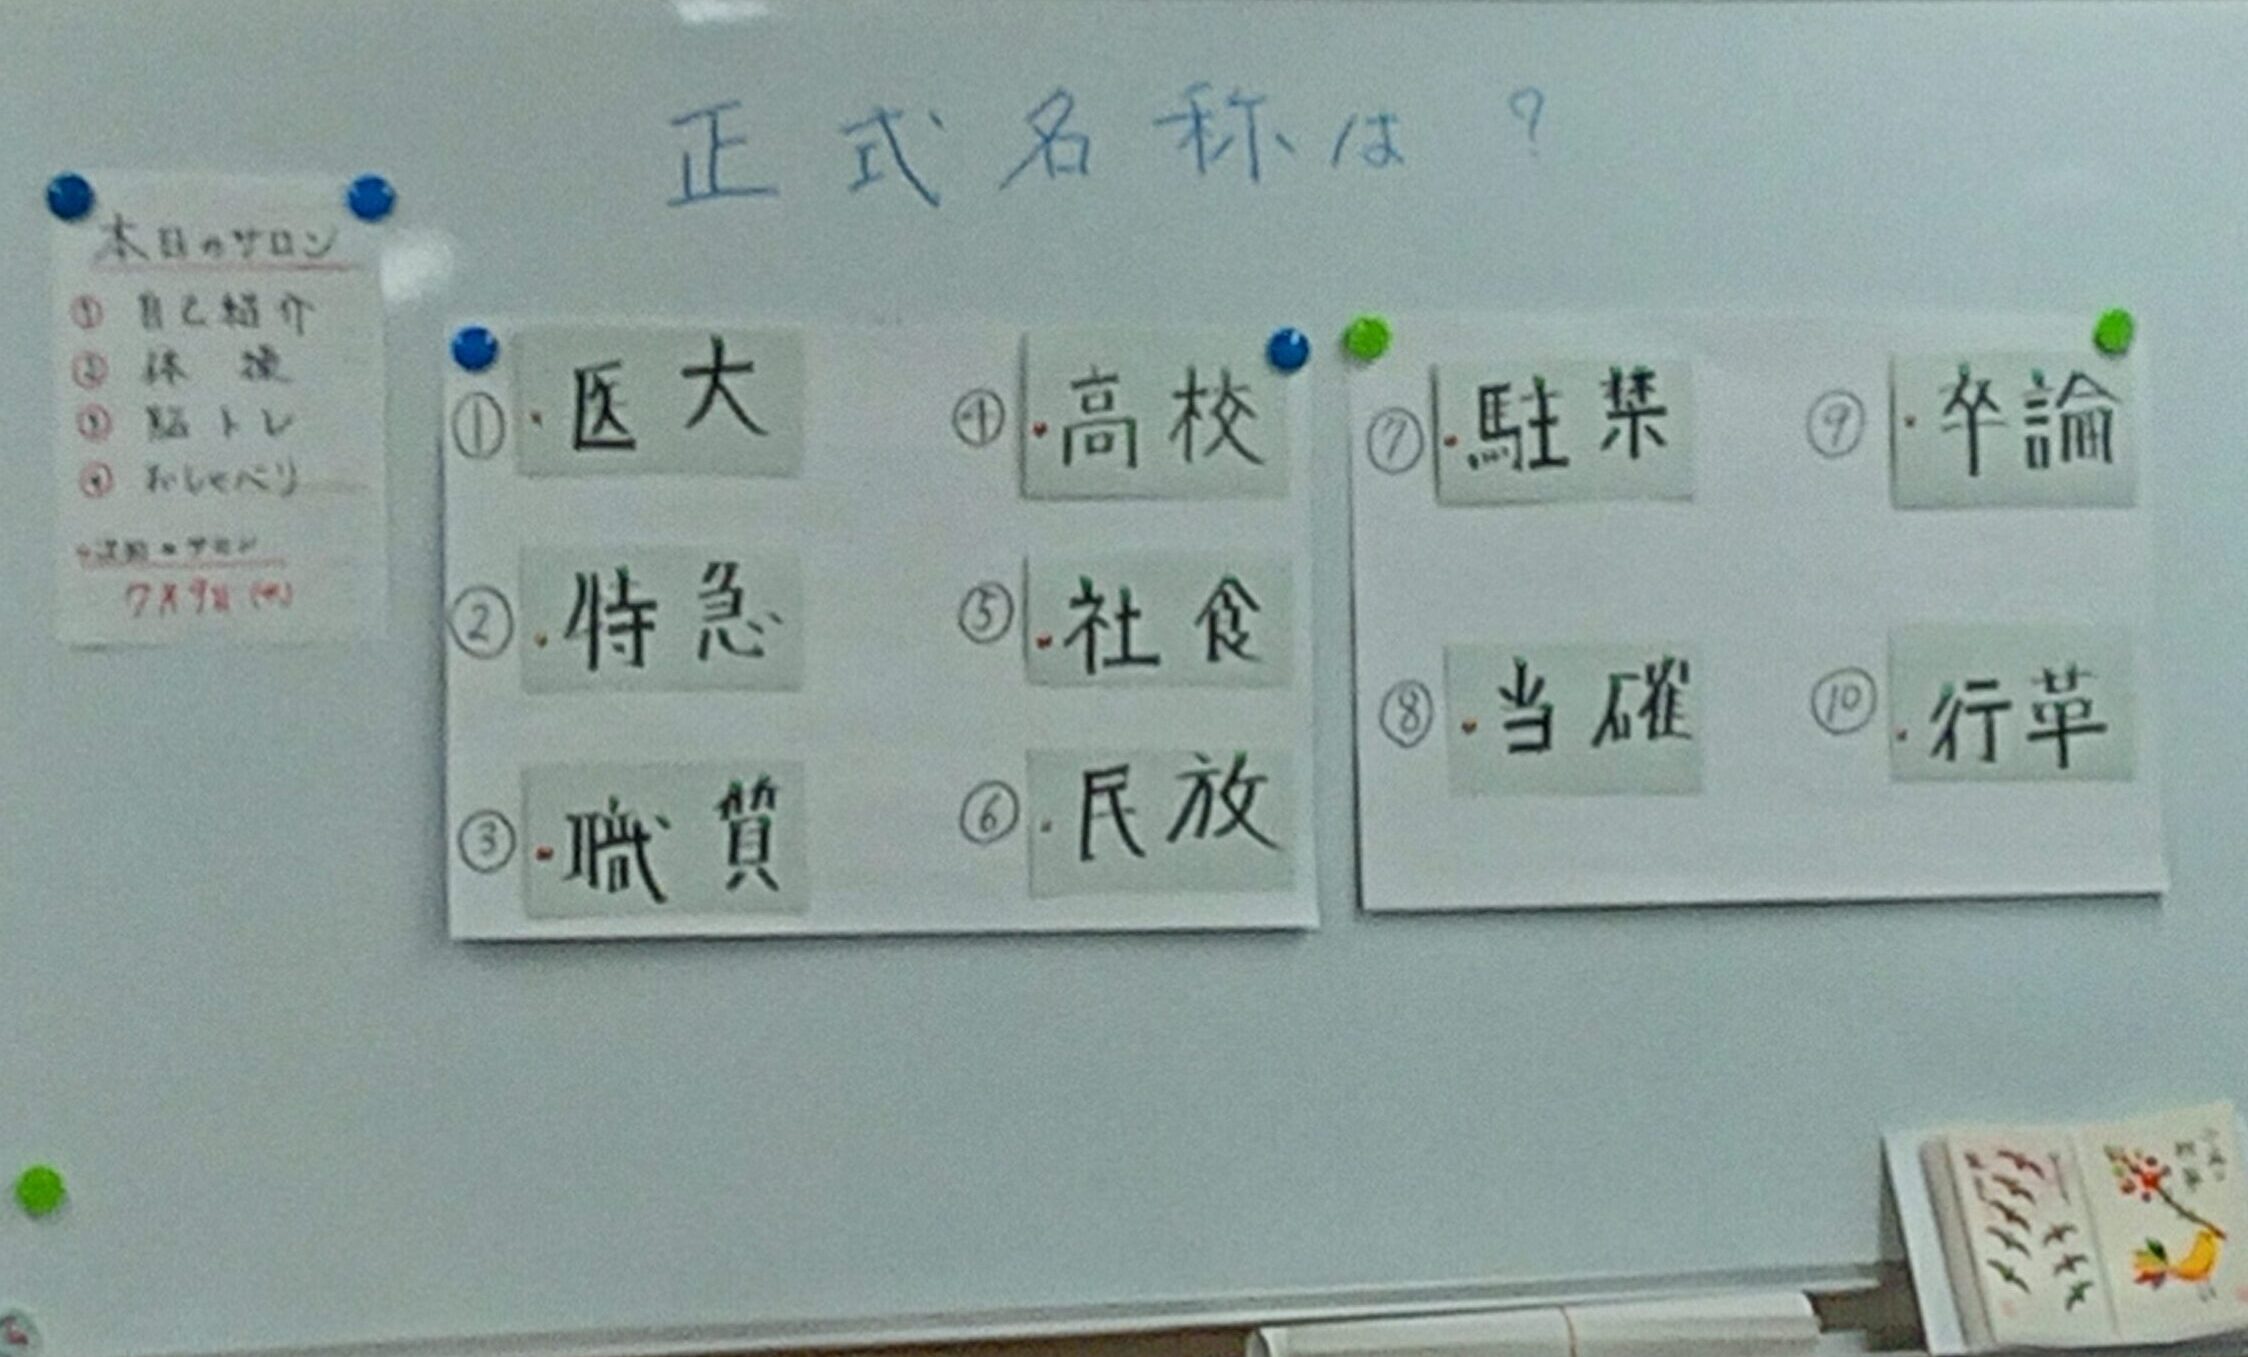 正式名称は?
本日のサロン
① 自己紹介
② 体操
③ 脳トレ
④ おしゃべり
次回のサロン
7月9日(水)
① ・医大
② ・特急
③ ・職質
④ ・高校
⑤ ・社食
⑥ ・民放
⑦ ・駐禁
⑧ ・当確
⑨ ・卒論
⑩ ・行革